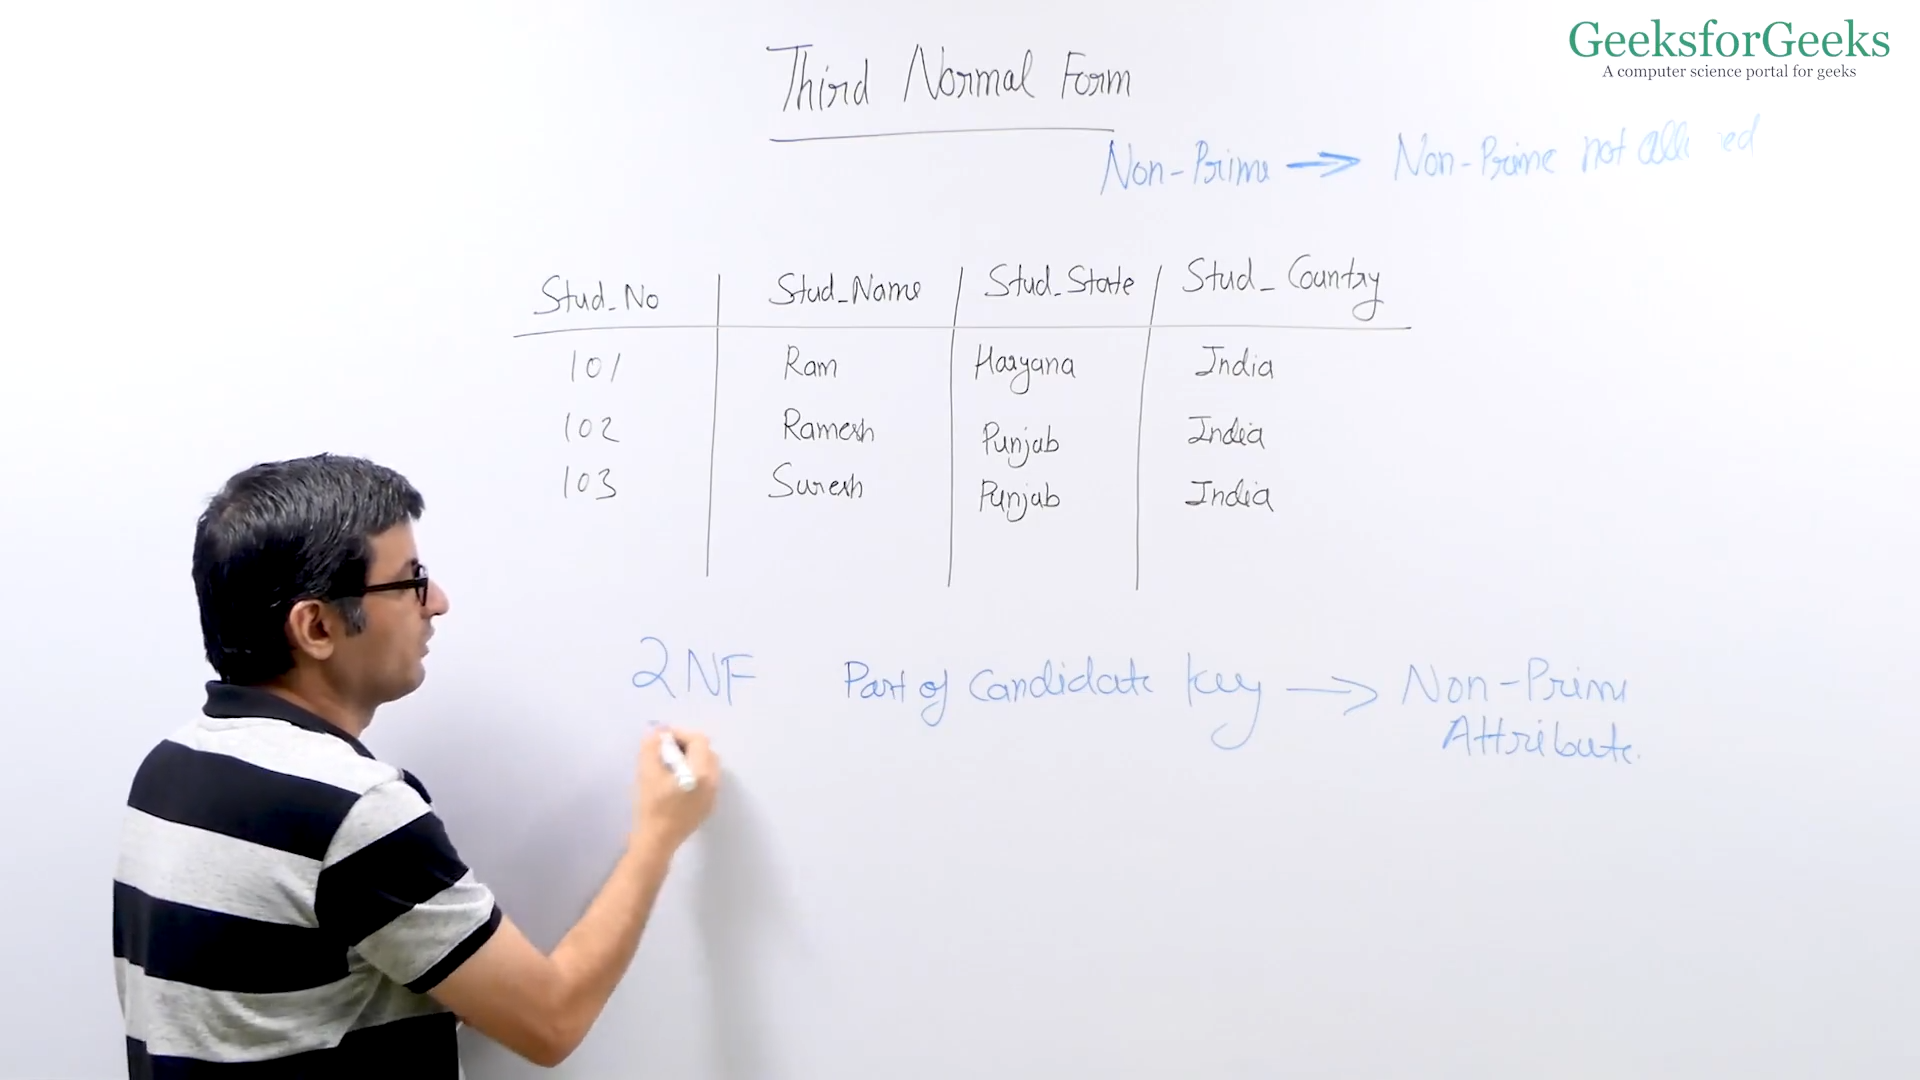 GeeksforGeeks
A computer science portal for geeks
Third Normal Form
Non-Prime → Non-Prime not
Stud_No Stud_Name Stud_State Stud_Country
101 Ram Haryana India
102 Ramesh Punjab India
103 Suresh Punjab India
2NF Part of Candidate Key → Non-Prime
Attribute.